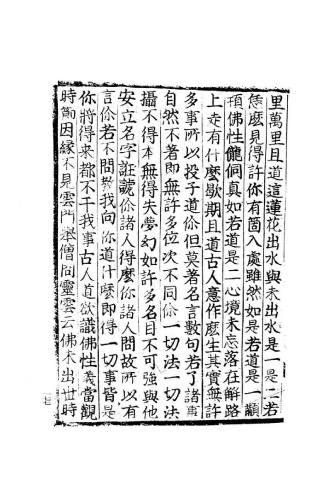 里萬里且道這蓮花出水與未出水是一是二若
恁麼見得許你有箇入處雖然如是若道是一顢
頇佛性儱侗真如若道是二心境未忘落在解路
上走有什麼歇期且道古人意作麼生其實無許
多事所以投子道你但莫著名言數句若了諸事
自然不著即無許多位次不同你一切法一切法
攝不得本無得失夢幻如許多名目不可強與他
安立名字誑謼你諸人得麼你諸人問故所以有
言你若不問教我向你道什麼即得一切事皆是
你將得來都不干我事古人道欲識佛性義當觀
時節因緣不見雲門舉僧問靈雲云佛未出世時